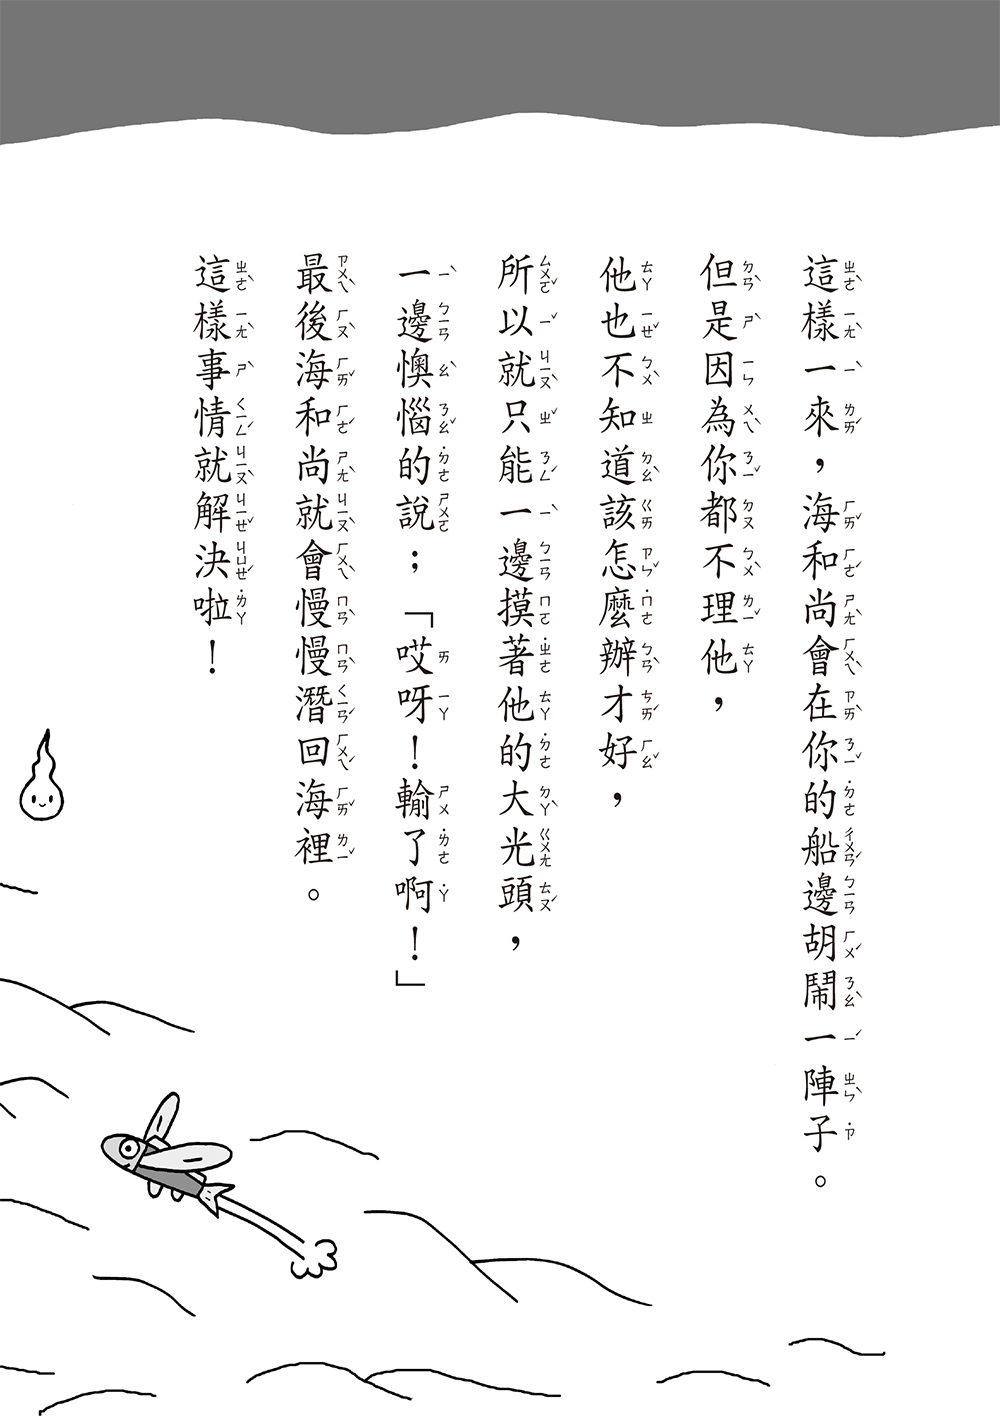 這樣一來，海和尚會在你的船邊胡鬧一陣子。
但是因為你都不理他，
他也不知道該怎麼辦才好，
所以就只能一邊摸著他的大光頭，
一邊懊惱的說；「哎呀！輸了啊！」
最後海和尚就會慢慢潛回海裡。
這樣事情就解決啦！